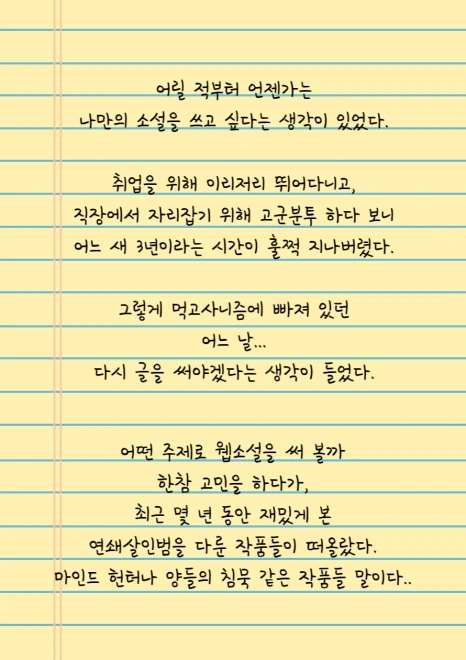 어릴 적부터 언젠가는
나만의 소설을 쓰고 싶다는 생각이 있었다.
취업을 위해 이리저리 뛰어다니고,
직장에서 자리잡기 위해 고군분투 하다 보니
어느 새 3년이라는 시간이 훌쩍 지나버렸다.
그렇게 먹고사니즘에 빠져 있던
어느 날...
다시 글을 써야겠다는 생각이 들었다.
어떤 주제로 웹소설을 써 볼까
한참 고민을 하다가,
최근 몇 년 동안 재밌게 본
연쇄살인범을 다룬 작품들이 떠올랐다.
마인드 헌터나 양들의 침묵 같은 작품들 말이다..